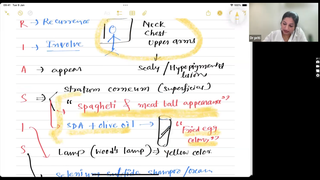 R → Recurrence
Neck
Chest
Upper arms
I → Involve
A → appear
Scaly / Hypopigmented
S ⇒ Stratum corneum (superficial)
"Spagheti & meat ball appearance"
I SDA + olive oil → "Fried egg
colony"
S Lamp (Wood's lamp) ⇒ Yellow color
Selenium sulfide shampoo /